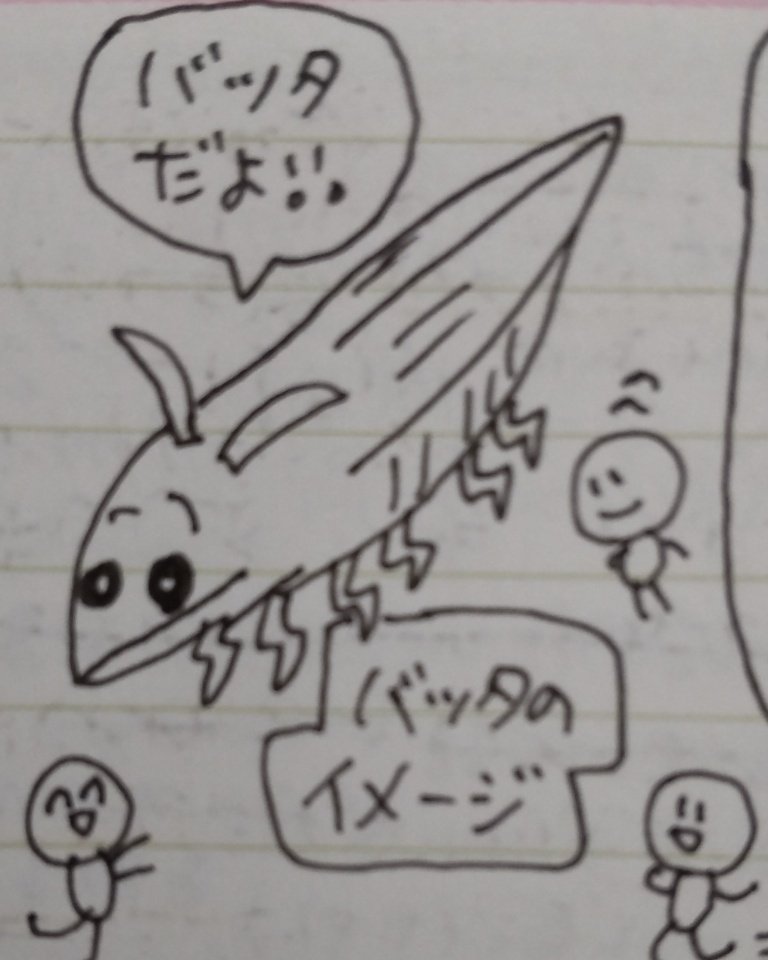 バッタ
だよ!!
バッタの
イメージ